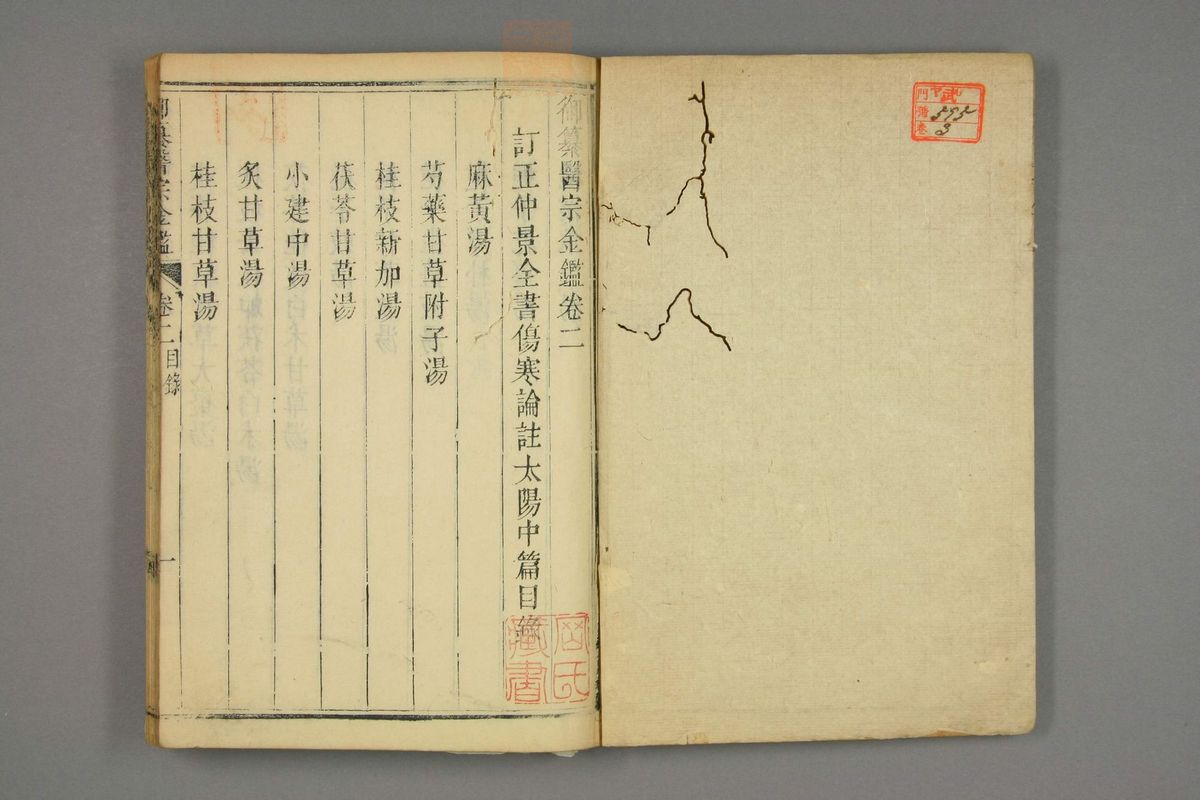 御纂醫宗金鑑卷二
訂正仲景全書傷寒論註太陽中篇目錄
麻黃湯
芍藥甘草附子湯
桂枝新加湯
茯苓甘草湯
小建中湯
炙甘草湯
桂枝甘草湯
御纂醫宗金鑑
卷二目錄
一
藏書
門 號 卷
595
3